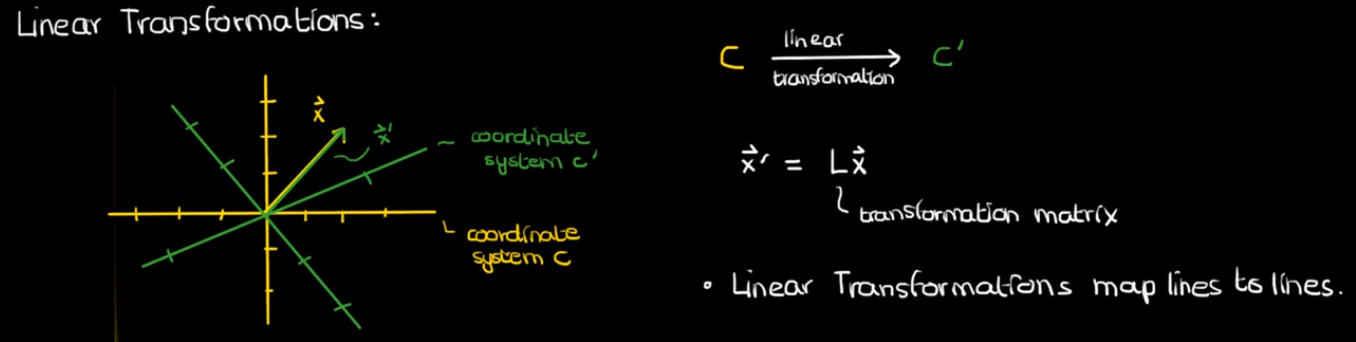 Linear Transformations:
x⃗
x⃗'
coordinate
system C'
coordinate
system C
C linear C'
transformation
x⃗' = Lx⃗
transformation matrix
• Linear Transformations map lines to lines.